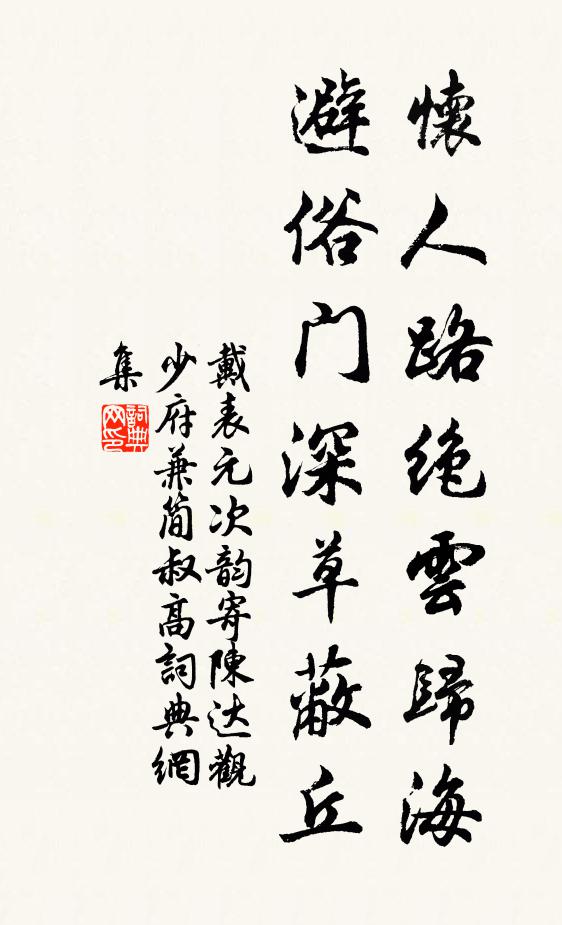 懷人路絶雲歸海
避俗门深草蔽丘
戴表元次韵寄陳达觀
少府兼简叔高詞典網
集
詞典
网印